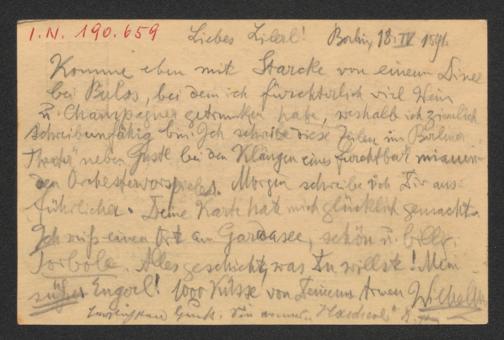 I.N. 190.659
Liebes Liberl! Berlin, 18. IV 1891.
Komme eben mit Starcke von einem Diner
bei Bulss, bei dem ich fürchterlich viel Wein
u. Champagner getrunken habe, weshalb ich ziemlich
schreibunfähig bin. Ich schreibe diese Zeilen im Berliner
Theater neben Gustl bei den Klängen eines furchtbar miauen
den Orchestervorspieles. Morgen schreibe ich Dir aus-
führlicher. Deine Karte hat mich glücklich gemacht.
Ich weiß einen Ort am Gardasee, schön u. billig.
Torbole. Alles geschieht, was Du willst! Mein
süßes Engerl! 1000 Küsse von Deinem Armen